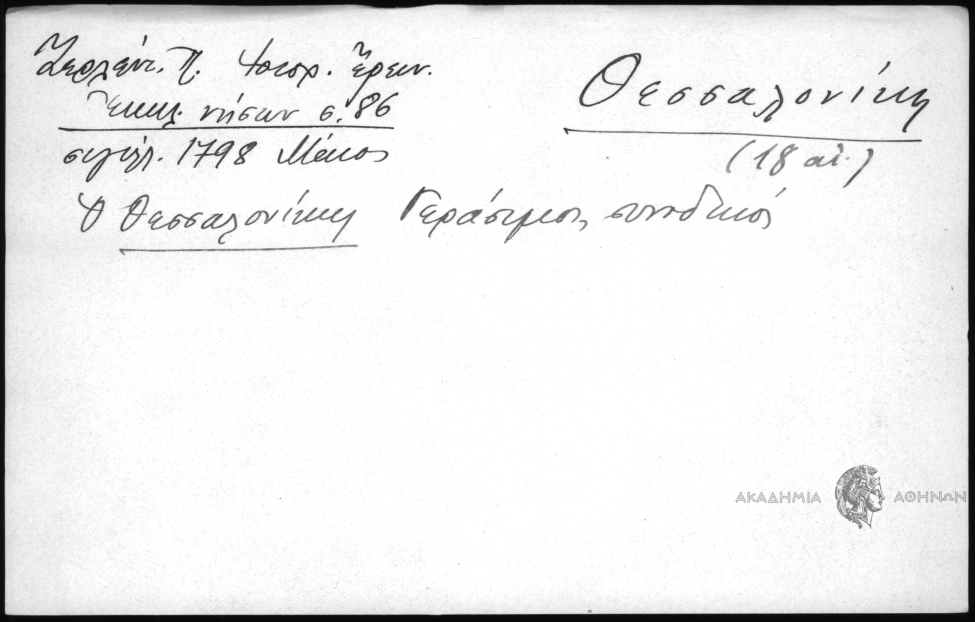 Ζερλέντ. Π. Ἱστορ. Ἔρευν.
Ἐκκλ. νήσων σ. 86
σιγίλλ. 1798
Θεσσαλονίκη
(18 αἰ.)
Ὁ Θεσσαλονίκης Γεράσιμος, συνοδικός
ΑΚΑΔΗΜΙΑ ΑΘΗΝΩΝ